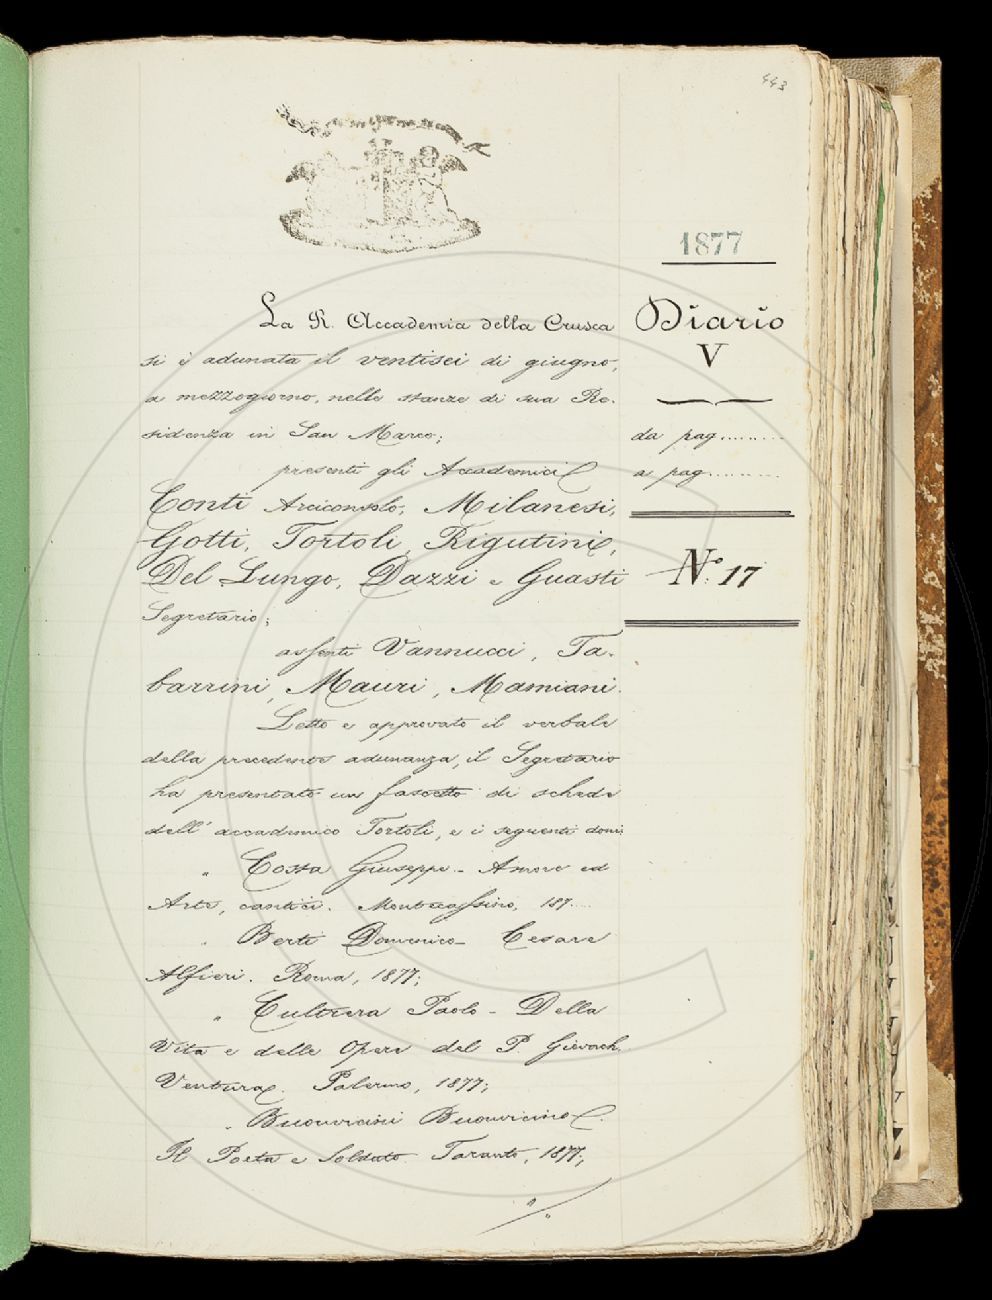 443
1877
Diario
V
da pag.........
a pag..........
N.° 17
La R. Accademia della Crusca
si è adunata il ventisei di giugno,
a mezzogiorno, nelle stanze di sua Re-
sidenza in San Marco;
presenti gli Accademici
Conti Arciconsolo, Milanesi,
Gotti, Tortoli, Rigutini,
Del Lungo, Dazzi e Guasti
Segretario;
assenti Vannucci, Ta-
barrini, Mauri, Mamiani.
Letto e approvato il verbale
della precedente adunanza, il Segretario
ha presentato un fascetto di schede
dell'accademico Tortoli, e i seguenti doni:
„ Costa Giuseppe - Amore ed
Arte, cantica. Montecassino, 187....
„ Berti Domenico - Cesare
Alfieri. Roma, 1877;
„ Cultrera Paolo - Della
Vita e delle Opere del P. Gioach.
Ventura. Palermo, 1877;
„ Buonvicini Buonvicino.
Il Poeta e Soldato. Taranto, 1877;